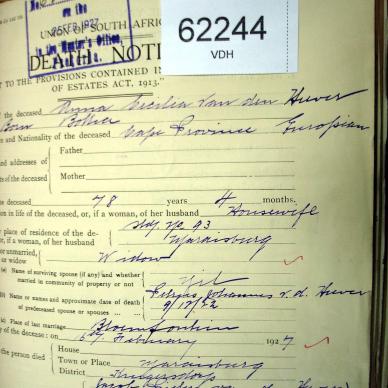 on the
25 FEB 1927
in the Master's Office,
62244
VDH
UNION OF SOUTH AFRIC
DEATH NOTI
T TO THE PROVISIONS CONTAINED IN
OF ESTATES ACT, 1913."
the deceased Anna Cecilia van den Heever
Born Bother
and Nationality of the deceased Cape Province European
addresses of
of the deceased
Father
Mother
deceased 78 years 4 months.
on in life of the deceased, or, if a woman, of her husband Housewife
place of residence of the de-
or, if a woman, of her husband
Std. No. 93
Maraisburg
or unmarried,
or widow
Widow
(a) Name of surviving spouse (if any) and whether
married in community of property or not
Nil
(b) Name or names and approximate date of death
of predeceased spouse or spouses
Johannes v. d. Heever
9/12/22
(c) Place of last marriage Bloemfontein
of the decease: on 6th February 1927
the person died
House
Town or Place Maraisburg
District Krugersdorp